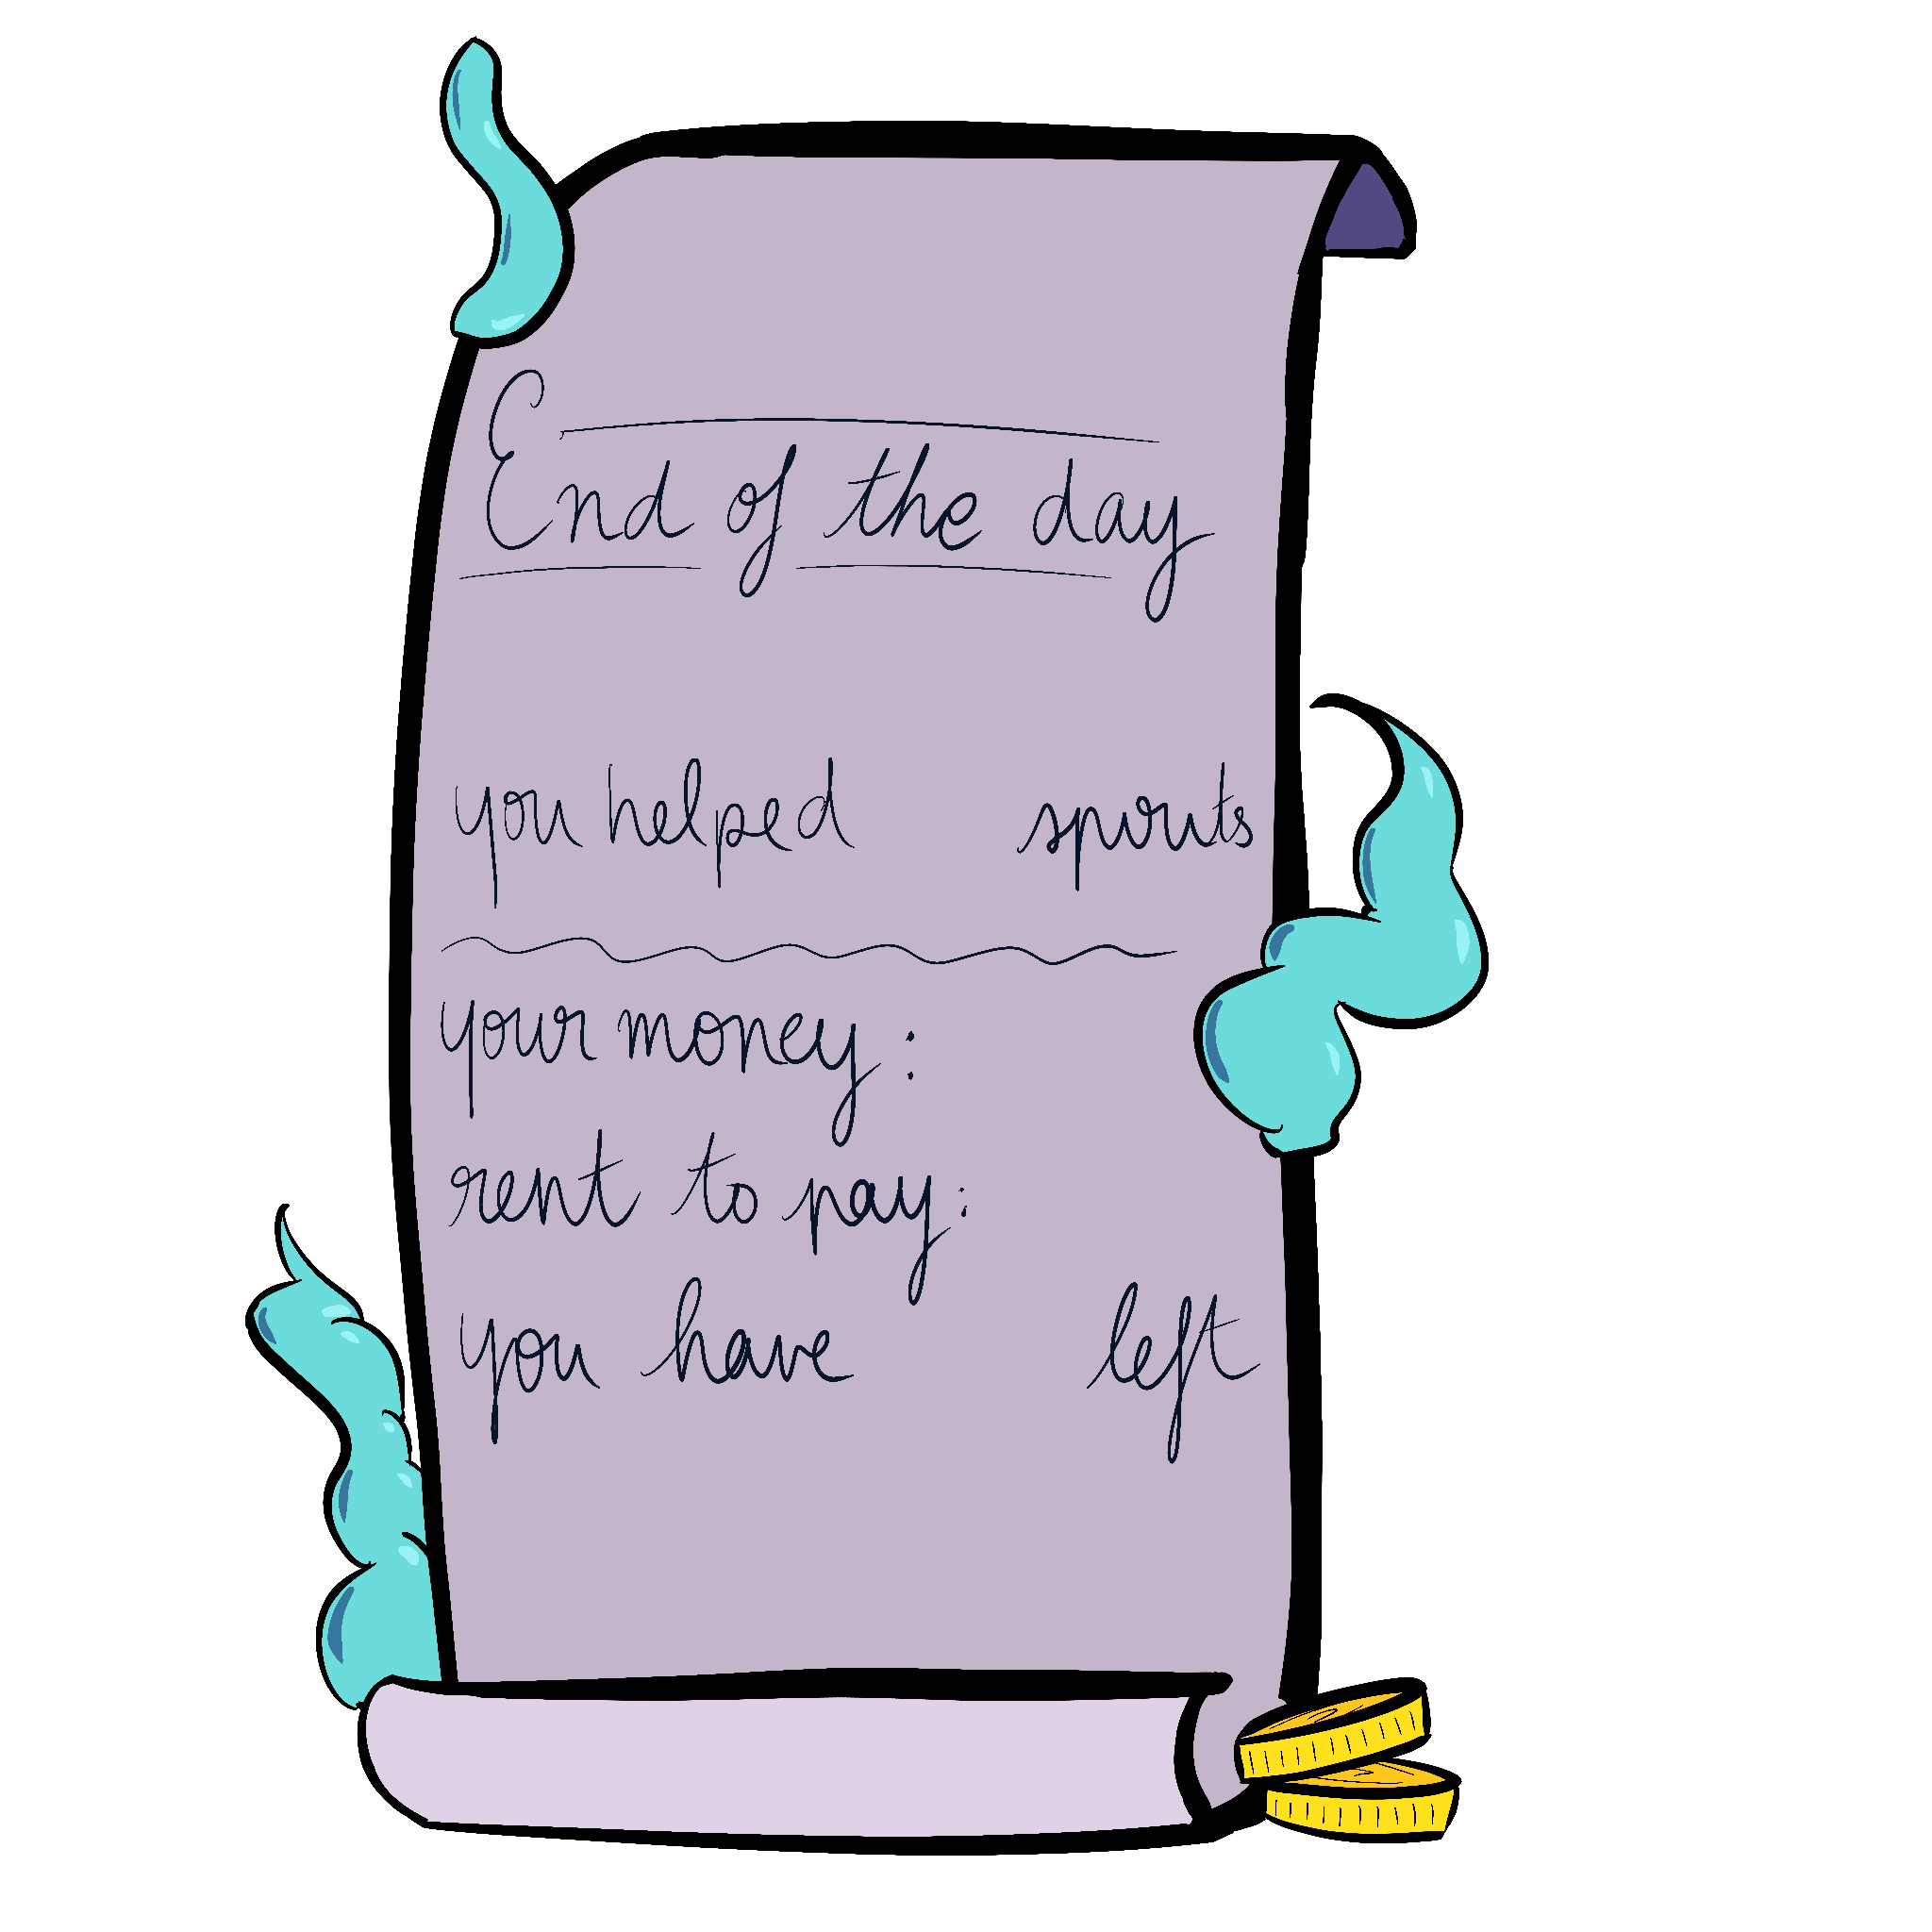 End of the day
you helped spirits
your money:
rent to pay:
you have left